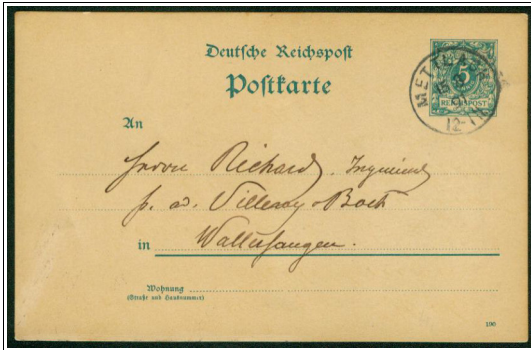 Deutsche Reichspost
Postkarte
5
REICHSPOST
METTLACH
An
Herrn Richard, Ingenieur
p. ad. Villeroy & Boch
in Wallerfangen.
Wohnung
(Straße und Hausnummer)